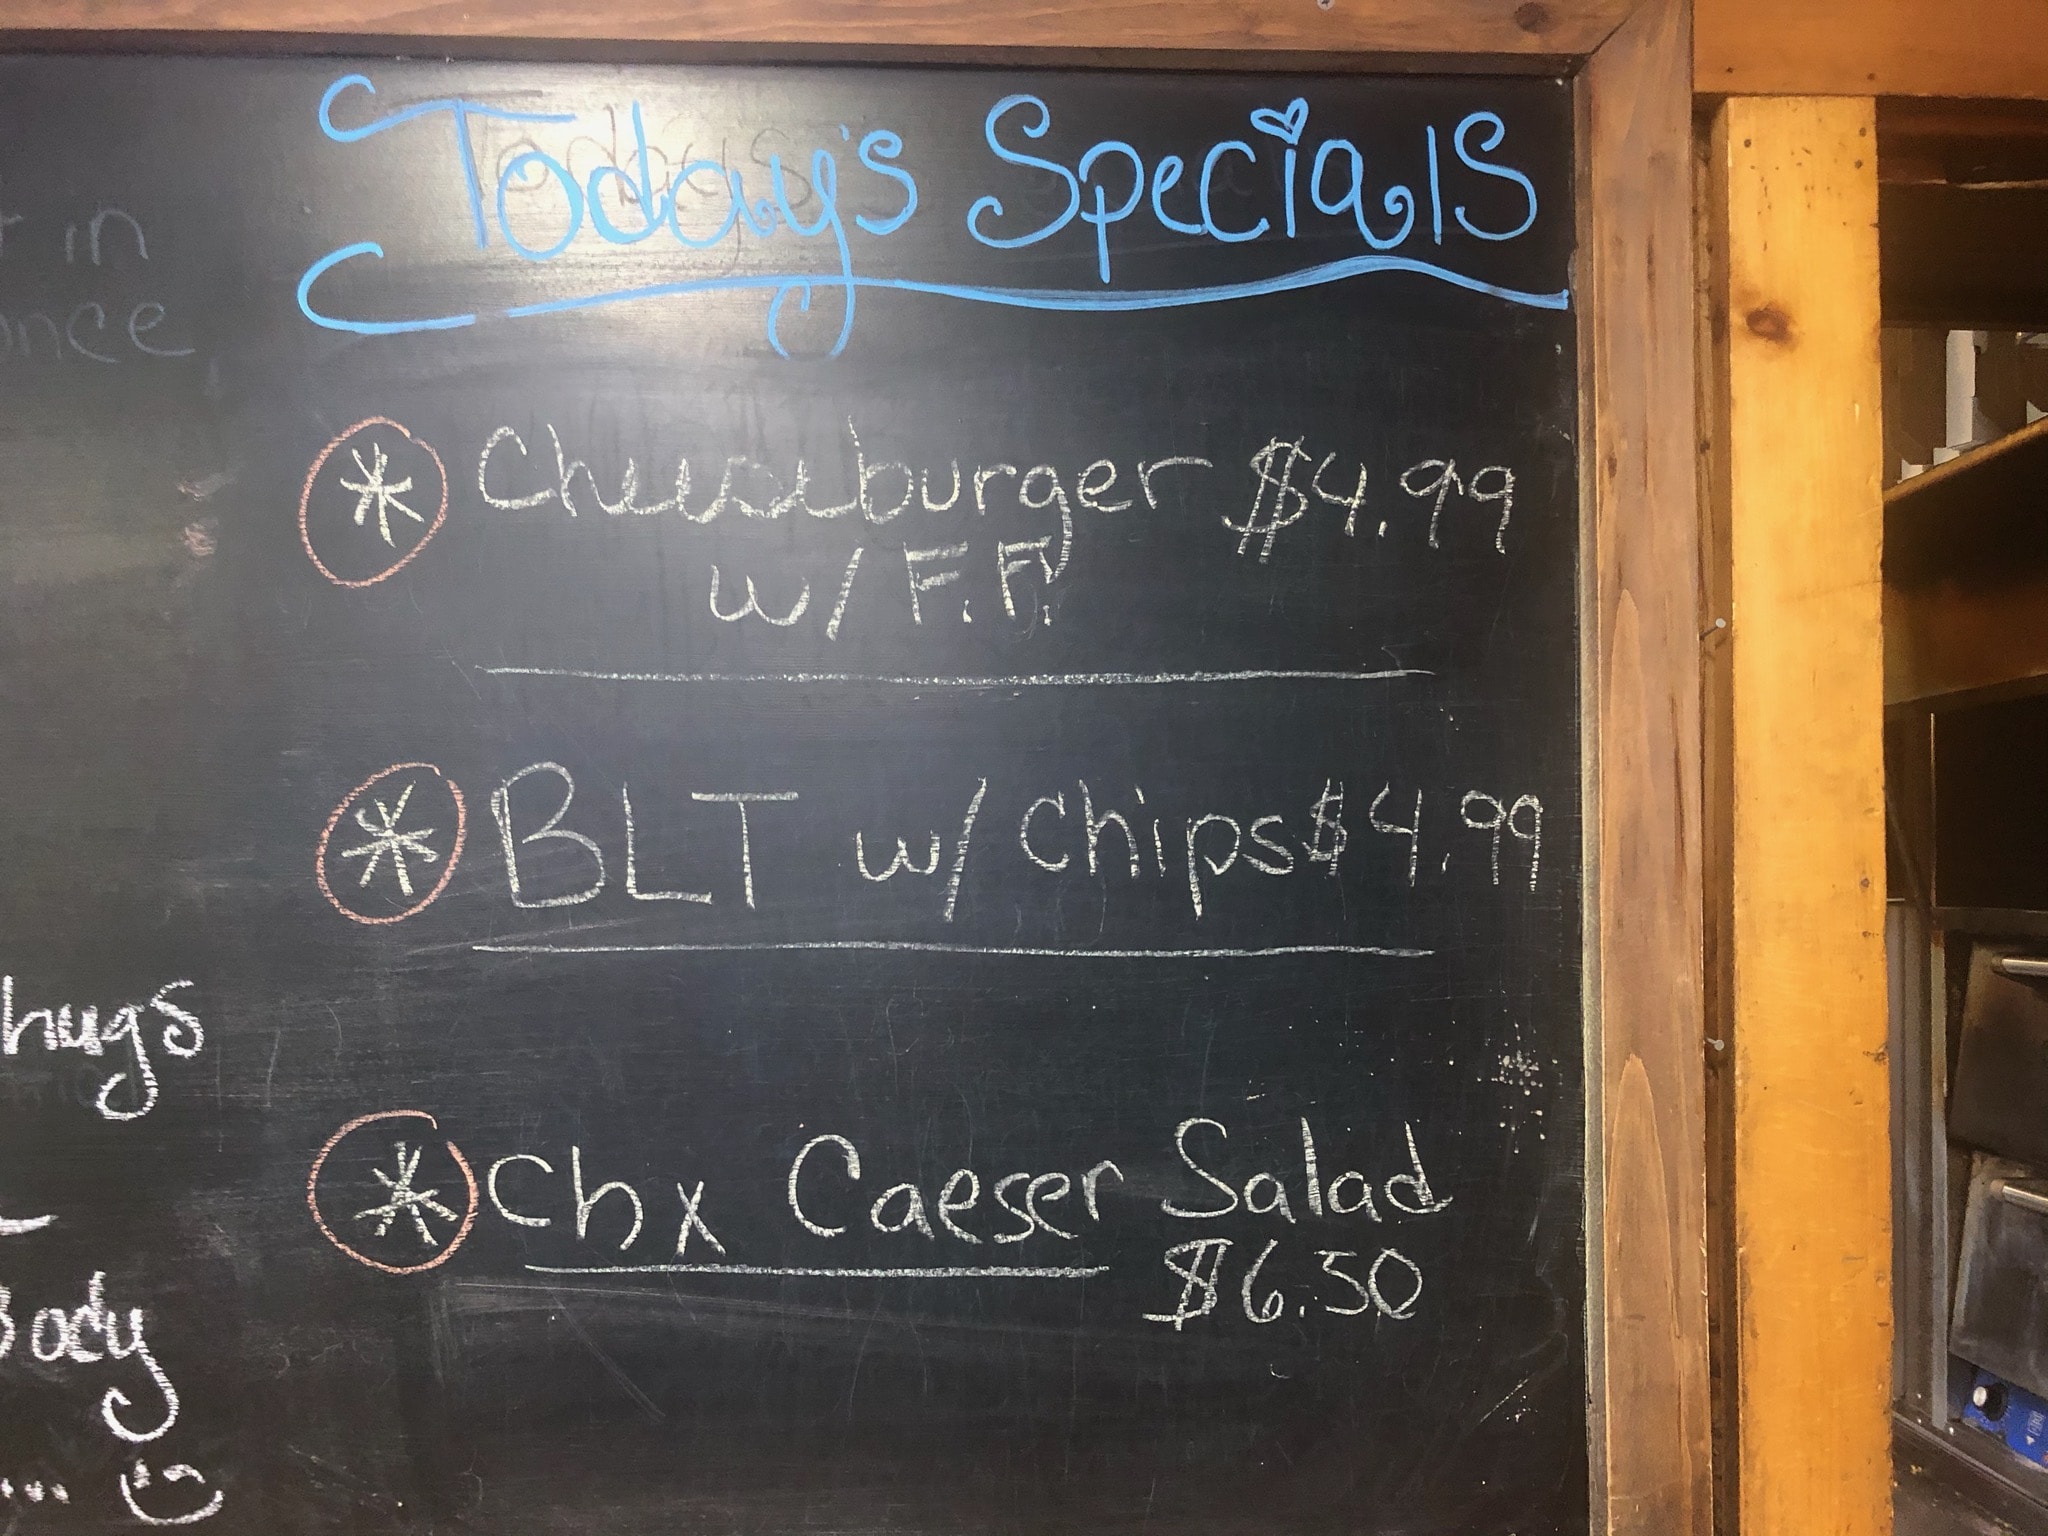 Today's Specials
in
once
* Cheeseburger $4.99
w/ F.F.
* BLT w/ chips $4.99
hugs
* Chx Caeser Salad
$6.50
Body
...